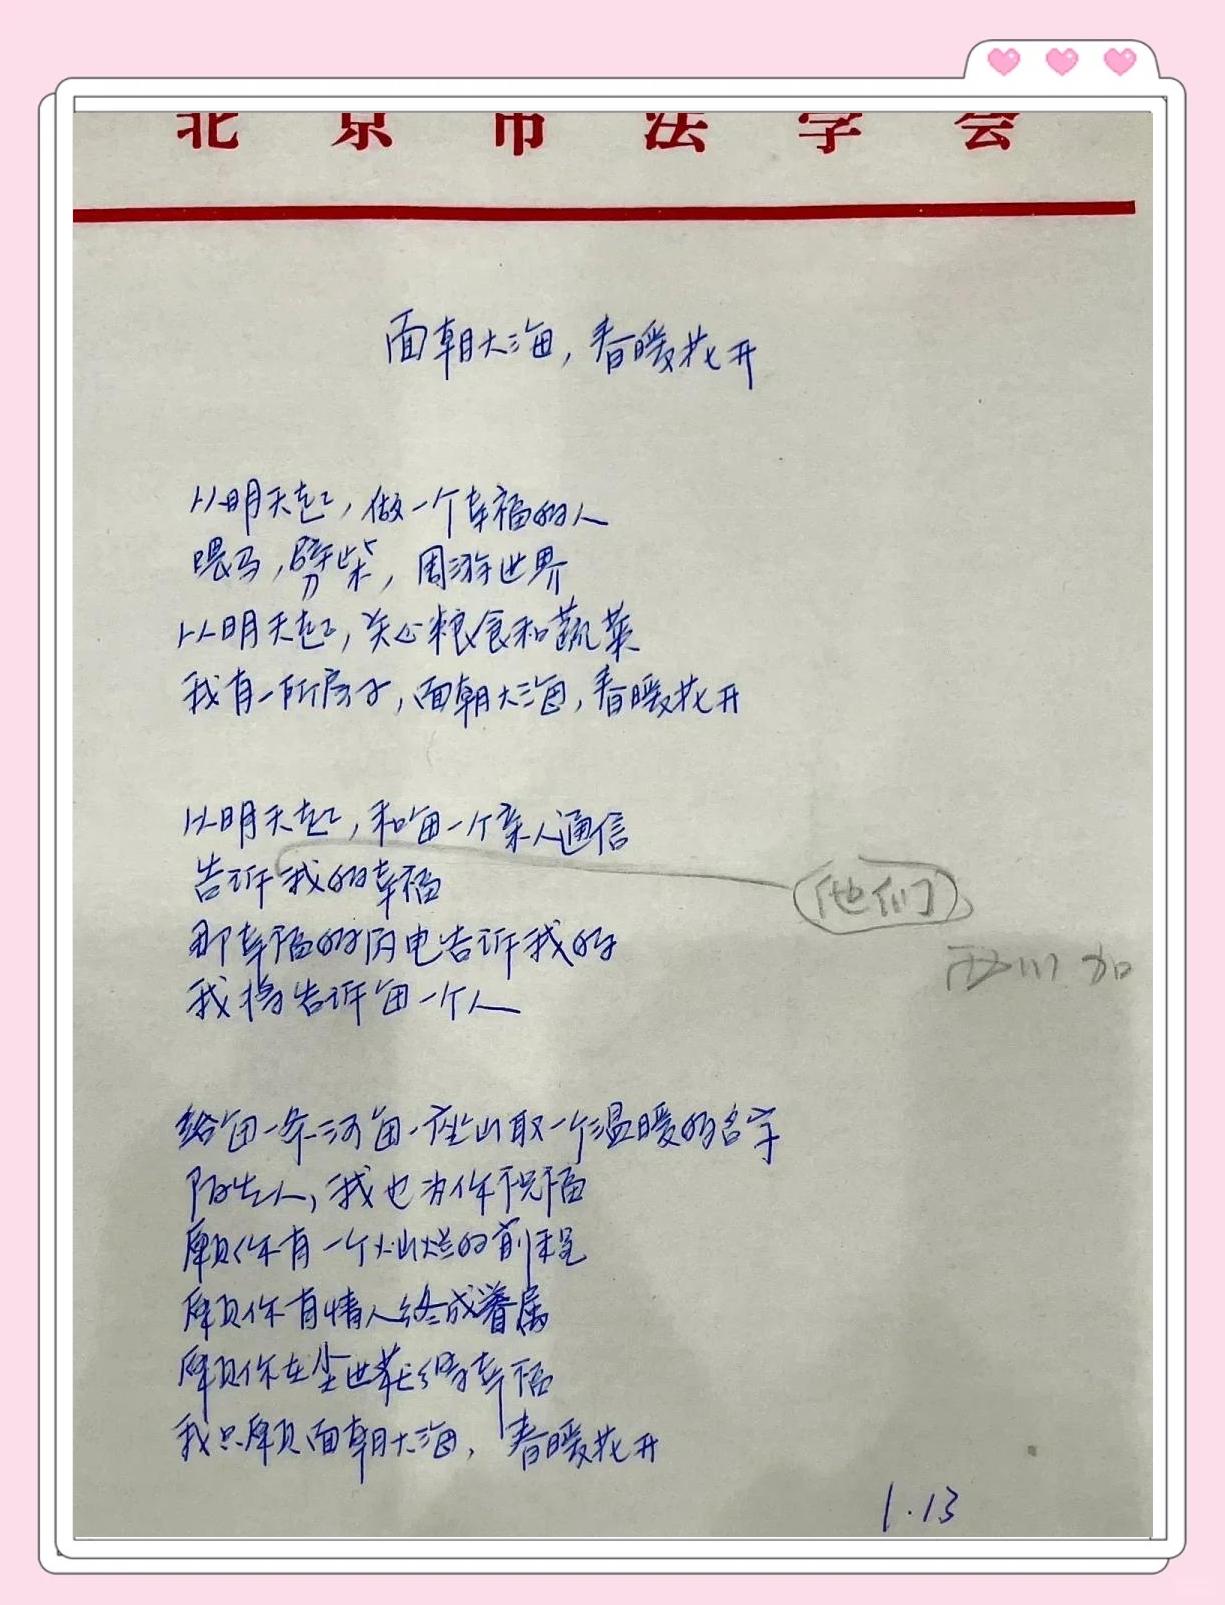 北京市法学会
面朝大海，春暖花开
从明天起，做一个幸福的人
喂马，劈柴，周游世界
从明天起，关心粮食和蔬菜
我有一所房子，面朝大海，春暖花开
从明天起，和每一个亲人通信
告诉我的幸福
他们
西川加
那幸福的闪电告诉我的
我将告诉每一个人
给每一条河每一座山取一个温暖的名字
陌生人，我也为你祝福
愿你有一个灿烂的前程
愿你有情人终成眷属
愿你在尘世获得幸福
我只愿面朝大海，春暖花开
1.13